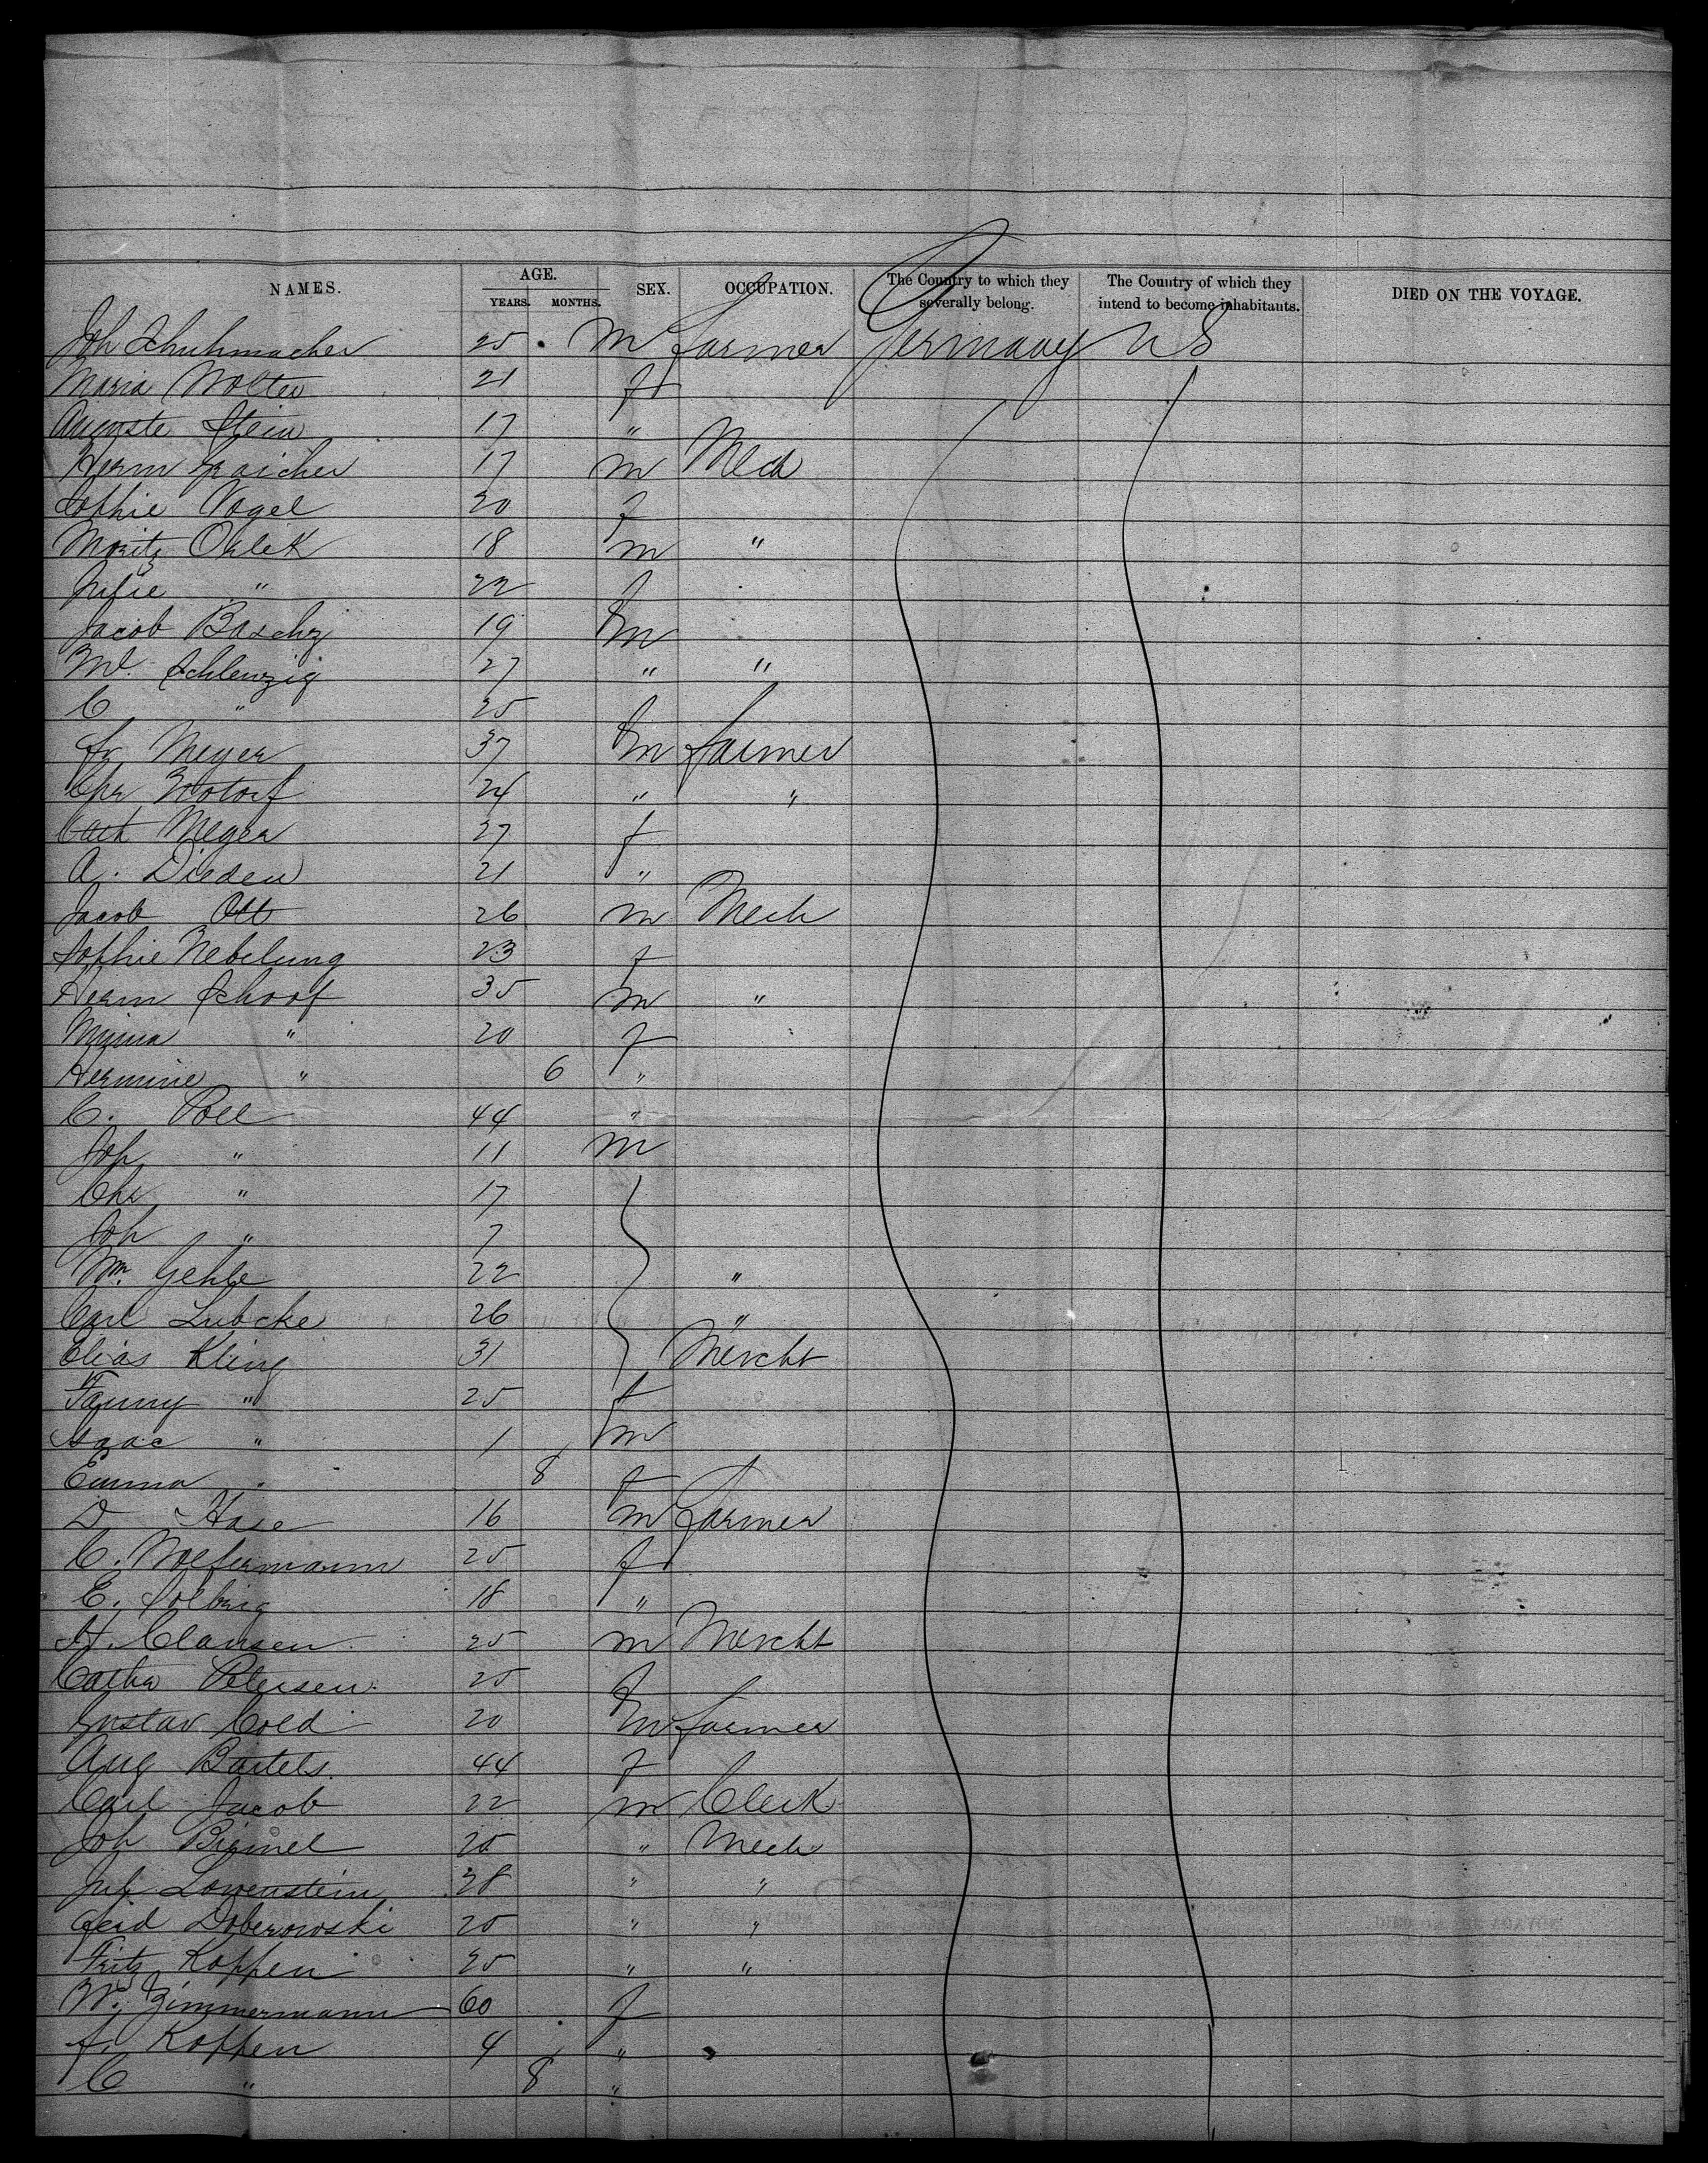 NAMES. AGE. YEARS. MONTHS. SEX. OCCUPATION. The Country to which they severally belong. The Country of which they intend to become inhabitants. DIED ON THE VOYAGE.
Joh Schuhmacher 25 m farmer Germany US
Maria Wolter 21 f
Auguste Stein 17 "
Herm 17 m Mech
Sophie Vogel 20 f
Moritz Ohlek 18 m "
Julie " 22 f
Jacob 19 m
Schlenzig 27 " "
C " 25 f
Fr Meyer 37 m farmer
Chr 24 " "
Cath Meyer 27 f
A. Dieden 21 "
Jacob Ott 26 m Mech
Sophie Nebelung 23 f
Herm Schoof 35 m "
Minna " 20 f
Hermine " 6 "
C. Poll 44 "
Joh " 11 m
Chr " 17
Joh " 7
Wm. Gehle 22 "
Carl Lubcke 26 "
Elias Kling 31 Mercht
Fanny " 25 f
Isaac " 1 m
Emma " 8 f
D Hase 16 m farmer
C. Wolfermann 25 f
E. Solbrig 18 "
H. Clausen 25 m Mercht
Catha Petersen 25 f
Gustav Cold 20 m farmer
Aug Bartels 44 f
Carl Jacob 22 m Clerk
Joh 25 " Mech
Jul. Lowenstein 28 " "
Doberowski 25 " "
Fritz Koppen 25 " "
W. Zimmermann 60 f
F. Koppen 4 "
C " 8 "